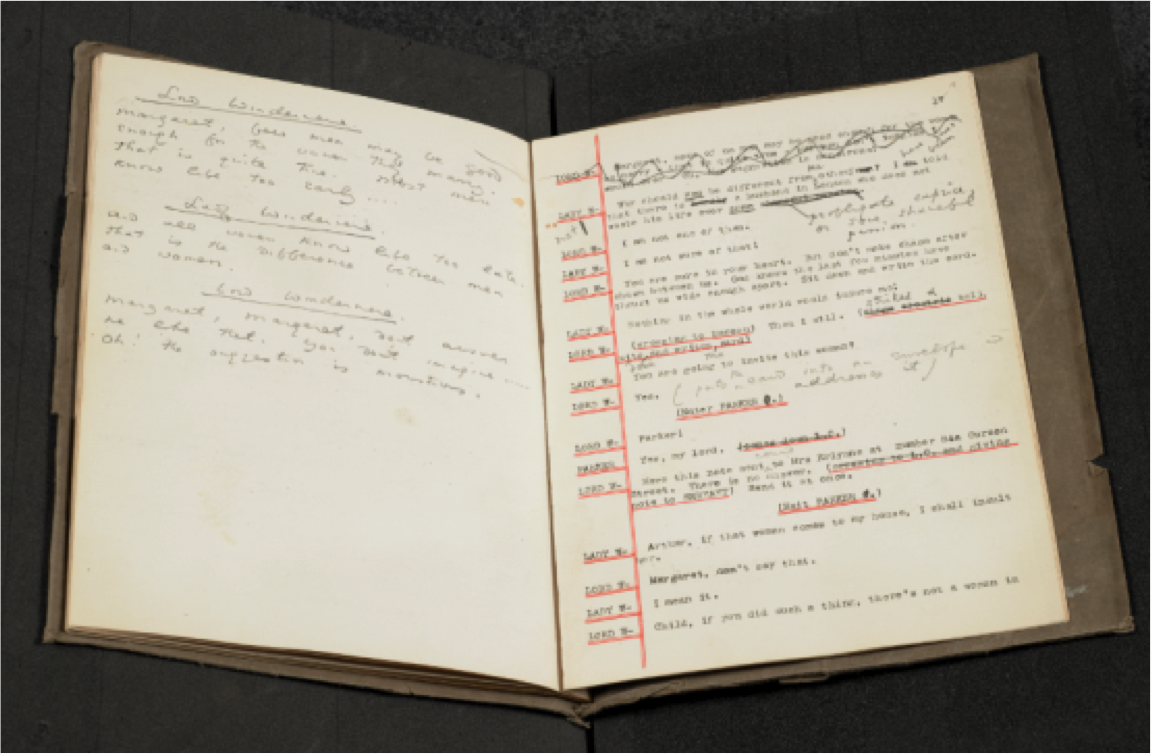 Lord Windermere
Margaret, some men may be good
enough for the women they marry.
That is quite true. Most men
know life too early ....
Lady Windermere.
and all women know life too late.
that is the difference between men
and women.
Lord Windermere.
Margaret, Margaret, don't answer
me like that. You don't imagine ....
Oh! the suggestion is monstrous.
LORD W. Margaret, none of us men may be good enough for the women
we marry
LADY W. Why should you be different from other men? I am told
that there is a husband in London who does not
waste his life over some
profligate
or some shameful
passion.
not
LORD W. I am not one of them.
LADY W. I am not sure of that!
LORD W. You are sure in your heart. But don't make chasm after
chasm between us. God knows the last few minutes have
thrust us wide enough apart. Sit down and write the card.
LADY W. Nothing in the whole world would induce me!
LORD W. (crossing to bureau) Then I will. (rings electric bell,
sits and writes card)
LADY W. You are going to invite this woman?
LORD W. Yes. (puts card into an envelope &
addresses it)
(Enter PARKER C.)
LORD W. Parker!
PARKER Yes, my lord. (comes down L.C.)
LORD W. Have this note sent to Mrs Erlynne at Number 84a Curzon
Street. There is no answer. (crossing to L.C. and giving
note to PARKER) Send it at once.
(Exit PARKER C.)
LADY W. Arthur, if that woman comes to my house, I shall insult
her.
LORD W. Margaret, don't say that.
LADY W. I mean it.
LORD W. Child, if you did such a thing, there's not a woman in